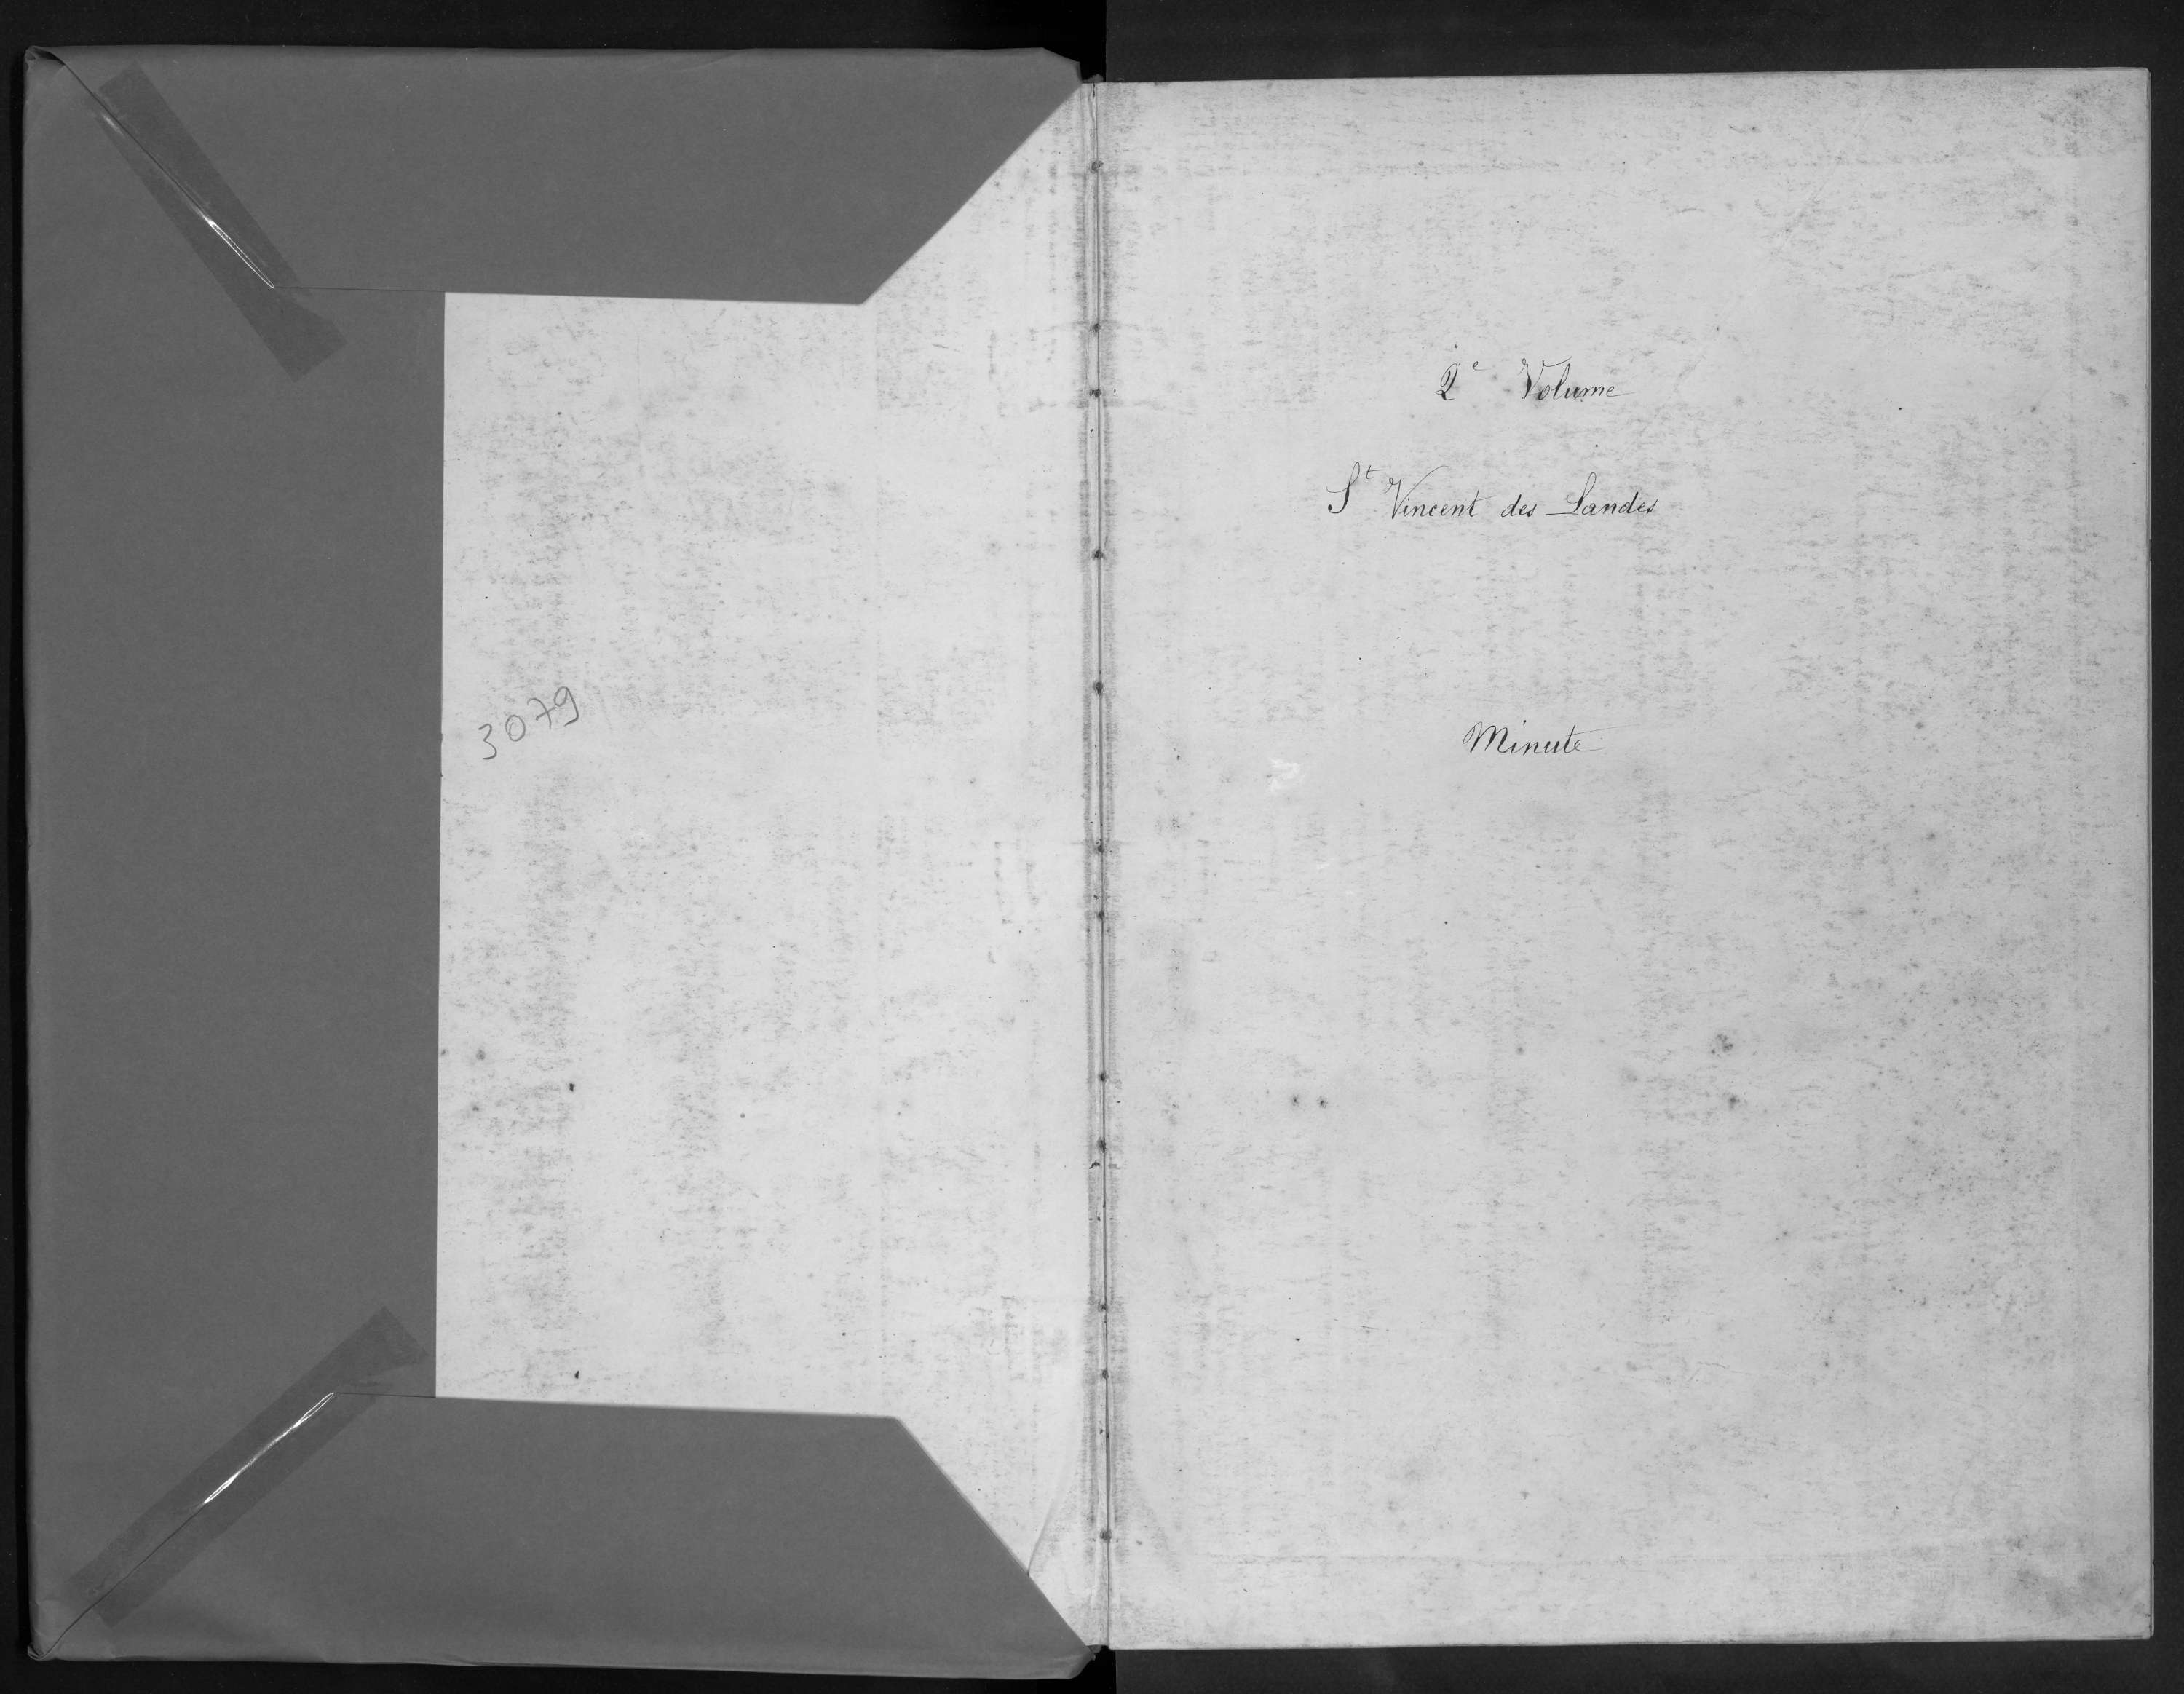 3079
2e Volume
St Vincent des Landes
Minute